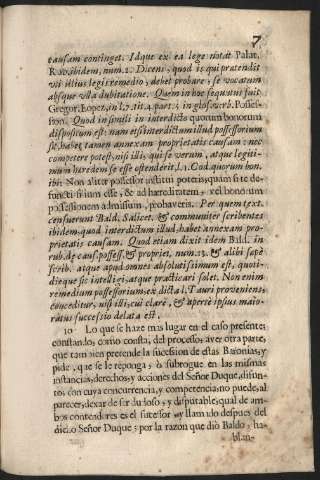 7
causam continget. Idque ex ea lege notat Palat.
Ruv. ibidem, num. 2. Dicens, quod is qui prætendit
uti illius legis remedio, debet probare se vocatum
absque ulla dubitatione. Quem in hoc sequutus fuit
Gregor. Lopez, in l. 2. tit. 4. part. 3. in glos. verb. Posses-
sion. Quod in simili in interdicto quorum bonorum
dispositum est: nam etsi interdictum illud possessorium
sit, habet tamen annexam proprietatis causam: nec
competere potest, nisi illi, qui se verum, atque legiti-
mum hæredem esse ostenderit, l. 1. Cod. quorum bon.
ibi: Non aliter possessor institui poteris, quam si te de-
functi filium esse, & ad hæreditatem, vel bonorum
possessionem admissum, probaveris. Per quem text.
censuerunt Bald. Salicet. & communiter scribentes
ibidem, quod interdictum illud habet annexam pro-
prietatis causam. Quod etiam dixit idem Bald. in
rub. de caus. possess. & propriet. num. 13. & alibi sæpè
scrib. atque apud omnes absolutissimum est, quoti-
dieque sic intelligi, atque practicari solet. Non enim
remedium possessorium, ex dicta l. Tauri proveniens,
conceditur, nisi illi, cui clarè, & apertè ipsius maio-
ratus successio delata est.
10 Lo que se haze mas lugar en el caso presente;
constando, como consta, del processo, aver otra parte,
que tambien pretende la sucession de estas Baronias, y
pide, que se le reponga, ò subrogue en las mismas
instancias, derechos, y acciones del Señor Duque, difun-
to; con cuya concurrencia, y competencia, no puede, al
parecer, dexar de ser dudoso, y disputable, qual de am-
bos contendores es el sucessor, y llamado despues del
dicho Señor Duque; por la razon que diò Baldo, ha-
blan-